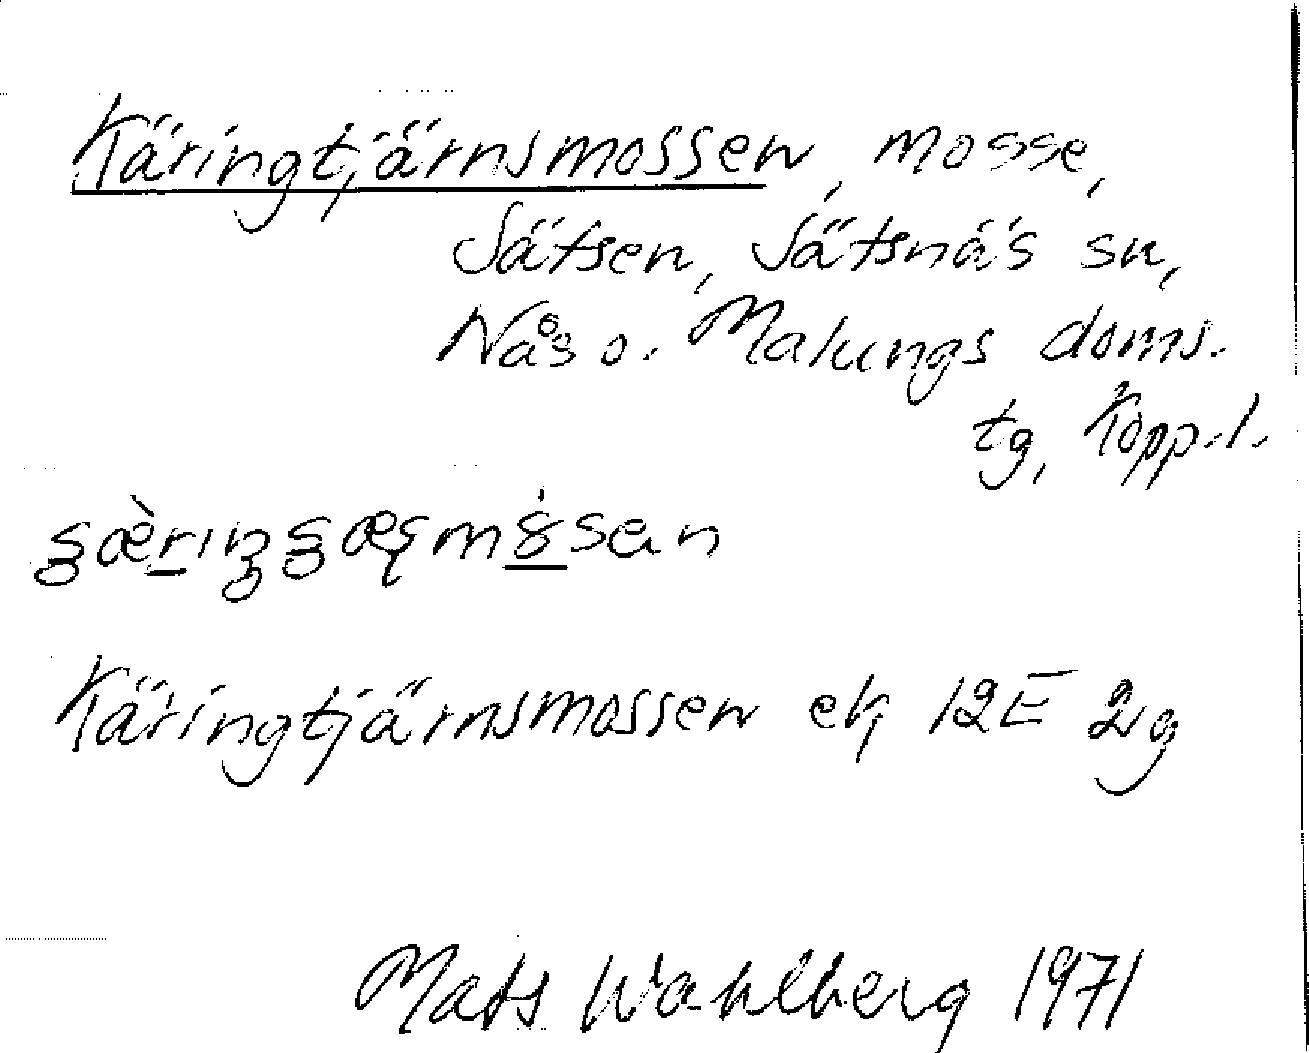 Käringtjärnsmossen, mosse,
Sätsen, Sätsnäs sn,
Nås o. Malungs doms.
tg, Kopp.l.
Käringtjärnsmossen ek 12E 2g
Mats Wahlberg 1971